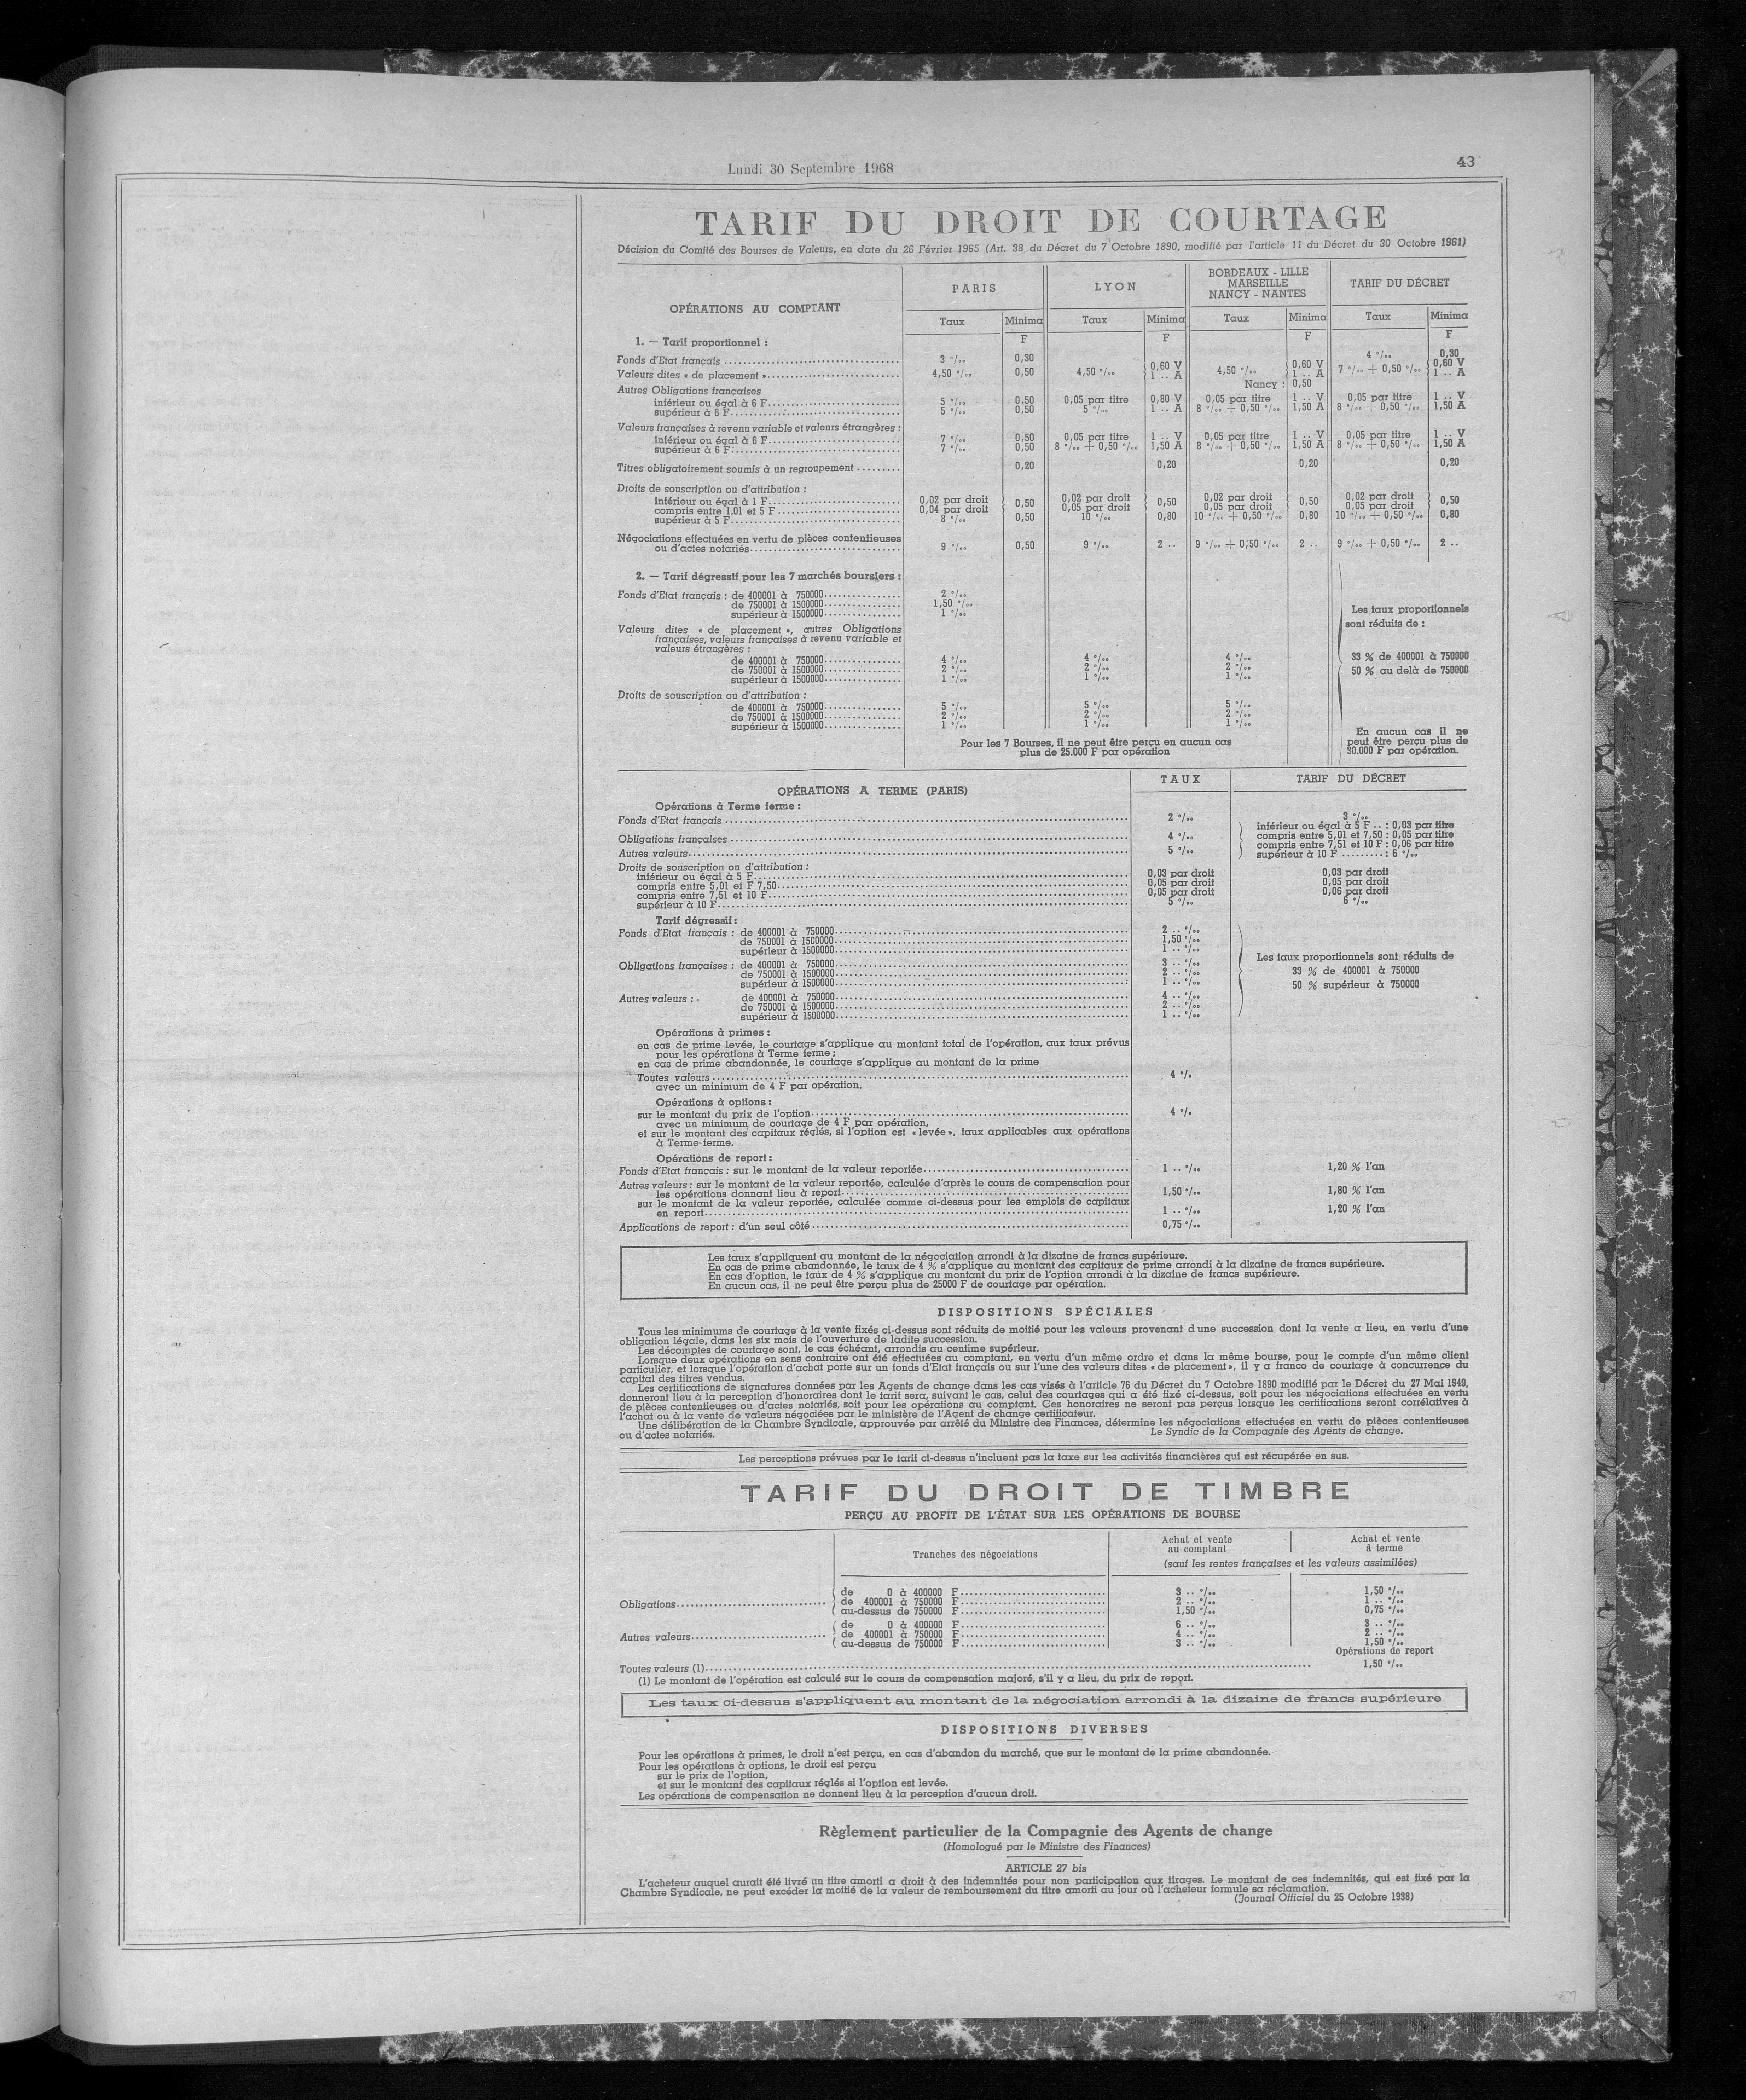 Lundi 30 Septembre 1968
43
TARIF DU DROIT DE COURTAGE
Décision du Comité des Bourses de Valeurs, en date du 26 Février 1965 (Art. 38 du Décret du 7 Octobre 1890, modifié par l'article 11 du Décret du 30 Octobre 1961)
OPÉRATIONS AU COMPTANT
PARIS
LYON
BORDEAUX - LILLE
MARSEILLE
NANCY - NANTES
TARIF DU DÉCRET
Taux Minima Taux Minima Taux Minima Taux Minima
F F F F
1. — Tarif proportionnel :
Fonds d'Etat français .......... 3 °/₀₀ 0,30 4 °/₀₀ 0,30
Valeurs dites « de placement » .......... 4,50 °/₀₀ 0,50 4,50 °/₀₀ { 0,60 V 4,50 °/₀₀ { 0,60 V 7 °/₀₀ + 0,50 °/₀₀ { 0,60 V
1 .. A 1 .. A 1 .. A
Nancy : 0,50
Autres Obligations françaises
inférieur ou égal à 6 F .......... 5 °/₀₀ 0,50 0,05 par titre 0,80 V 0,05 par titre 1 .. V 0,05 par titre 1 .. V
supérieur à 6 F .......... 5 °/₀₀ 0,50 5 °/₀₀ 1 .. A 8 °/₀₀ + 0,50 °/₀₀ 1,50 A 8 °/₀₀ + 0,50 °/₀₀ 1,50 A
Valeurs françaises à revenu variable et valeurs étrangères :
inférieur ou égal à 6 F .......... 7 °/₀₀ 0,50 0,05 par titre 1 .. V 0,05 par titre 1 .. V 0,05 par titre 1 .. V
supérieur à 6 F .......... 7 °/₀₀ 0,50 8 °/₀₀ + 0,50 °/₀₀ 1,50 A 8 °/₀₀ + 0,50 °/₀₀ 1,50 A 8 °/₀₀ + 0,50 °/₀₀ 1,50 A
Titres obligatoirement soumis à un regroupement .......... 0,20 0,20 0,20 0,20
Droits de souscription ou d'attribution :
inférieur ou égal à 1 F .......... 0,02 par droit } 0,50 0,02 par droit } 0,50 0,02 par droit } 0,50 0,02 par droit } 0,50
compris entre 1,01 et 5 F .......... 0,04 par droit 0,05 par droit 0,05 par droit 0,05 par droit
supérieur à 5 F .......... 8 °/₀₀ 0,50 10 °/₀₀ 0,80 10 °/₀₀ + 0,50 °/₀₀ 0,80 10 °/₀₀ + 0,50 °/₀₀ 0,80
Négociations effectuées en vertu de pièces contentieuses
ou d'actes notariés .......... 9 °/₀₀ 0,50 9 °/₀₀ 2 .. 9 °/₀₀ + 0,50 °/₀₀ 2 .. 9 °/₀₀ + 0,50 °/₀₀ 2 ..
2. — Tarif dégressif pour les 7 marchés boursiers :
Fonds d'Etat français : de 400001 à 750000 .......... 2 °/₀₀
de 750001 à 1500000 .......... 1,50 °/₀₀
supérieur à 1500000 .......... 1 °/₀₀
Valeurs dites « de placement », autres Obligations
françaises, valeurs françaises à revenu variable et
valeurs étrangères :
de 400001 à 750000 .......... 4 °/₀₀ 4 °/₀₀ 4 °/₀₀
de 750001 à 1500000 .......... 2 °/₀₀ 2 °/₀₀ 2 °/₀₀
supérieur à 1500000 .......... 1 °/₀₀ 1 °/₀₀ 1 °/₀₀
Droits de souscription ou d'attribution :
de 400001 à 750000 .......... 5 °/₀₀ 5 °/₀₀ 5 °/₀₀
de 750001 à 1500000 .......... 2 °/₀₀ 2 °/₀₀ 2 °/₀₀
supérieur à 1500000 .......... 1 °/₀₀ 1 °/₀₀ 1 °/₀₀
Pour les 7 Bourses, il ne peut être perçu en aucun cas
plus de 25.000 F par opération
Les taux proportionnels
sont réduits de :
33 % de 400001 à 750000
50 % au delà de 750000
En aucun cas il ne
peut être perçu plus de
30.000 F par opération.
OPÉRATIONS A TERME (PARIS)
TAUX
TARIF DU DÉCRET
Opérations à Terme ferme :
Fonds d'Etat français .......... 2 °/₀₀ 3 °/₀₀
Obligations françaises .......... 4 °/₀₀
Autres valeurs .......... 5 °/₀₀
inférieur ou égal à 5 F .. : 0,03 par titre
compris entre 5,01 et 7,50 : 0,05 par titre
compris entre 7,51 et 10 F : 0,06 par titre
supérieur à 10 F ......... : 6 °/₀₀
Droits de souscription ou d'attribution :
inférieur ou égal à 5 F .......... 0,03 par droit 0,03 par droit
compris entre 5,01 et F 7,50 .......... 0,05 par droit 0,05 par droit
compris entre 7,51 et 10 F .......... 0,05 par droit 0,06 par droit
supérieur à 10 F .......... 5 °/₀₀ 6 °/₀₀
Tarif dégressif :
Fonds d'Etat français : de 400001 à 750000 .......... 2 .. °/₀₀
de 750001 à 1500000 .......... 1,50 °/₀₀
supérieur à 1500000 .......... 1 .. °/₀₀
Obligations françaises : de 400001 à 750000 .......... 3 .. °/₀₀
de 750001 à 1500000 .......... 2 .. °/₀₀
supérieur à 1500000 .......... 1 .. °/₀₀
Autres valeurs : de 400001 à 750000 .......... 4 .. °/₀₀
de 750001 à 1500000 .......... 2 .. °/₀₀
supérieur à 1500000 .......... 1 .. °/₀₀
Les taux proportionnels sont réduits de
33 % de 400001 à 750000
50 % supérieur à 750000
Opérations à primes :
en cas de prime levée, le courtage s'applique au montant total de l'opération, aux taux prévus
pour les opérations à Terme ferme ;
en cas de prime abandonnée, le courtage s'applique au montant de la prime
Toutes valeurs .......... 4 °/₀
avec un minimum de 4 F par opération.
Opérations à options :
sur le montant du prix de l'option .......... 4 °/₀
avec un minimum de courtage de 4 F par opération,
et sur le montant des capitaux réglés, si l'option est « levée », taux applicables aux opérations
à Terme ferme.
Opérations de report :
Fonds d'Etat français : sur le montant de la valeur reportée .......... 1 .. °/₀₀ 1,20 % l'an
Autres valeurs : sur le montant de la valeur reportée, calculée d'après le cours de compensation pour
les opérations donnant lieu à report .......... 1,50 °/₀₀ 1,80 % l'an
sur le montant de la valeur reportée, calculée comme ci-dessus pour les emplois de capitaux
en report .......... 1 .. °/₀₀ 1,20 % l'an
Applications de report : d'un seul côté .......... 0,75 °/₀₀
Les taux s'appliquent au montant de la négociation arrondi à la dizaine de francs supérieure.
En cas de prime abandonnée, le taux de 4 % s'applique au montant des capitaux de prime arrondi à la dizaine de francs supérieure.
En cas d'option, le taux de 4 % s'applique au montant du prix de l'option arrondi à la dizaine de francs supérieure.
En aucun cas, il ne peut être perçu plus de 25000 F de courtage par opération.
DISPOSITIONS SPÉCIALES
Tous les minimums de courtage à la vente fixés ci-dessus sont réduits de moitié pour les valeurs provenant d une succession dont la vente a lieu, en vertu d'une
obligation légale, dans les six mois de l'ouverture de ladite succession.
Les décomptes de courtage sont, le cas échéant, arrondis au centime supérieur.
Lorsque deux opérations en sens contraire ont été effectuées au comptant, en vertu d'un même ordre et dans la même bourse, pour le compte d'un même client
particulier, et lorsque l'opération d'achat porte sur un fonds d'Etat français ou sur l'une des valeurs dites « de placement », il y a franco de courtage à concurrence du
capital des titres vendus.
Les certifications de signatures données par les Agents de change dans les cas visés à l'article 76 du Décret du 7 Octobre 1890 modifié par le Décret du 27 Mai 1949,
donneront lieu à la perception d'honoraires dont le tarif sera, suivant le cas, celui des courtages qui a été fixé ci-dessus, soit pour les négociations effectuées en vertu
de pièces contentieuses ou d'actes notariés, soit pour les opérations au comptant. Ces honoraires ne seront pas perçus lorsque les certifications seront corrélatives à
l'achat ou à la vente de valeurs négociées par le ministère de l'Agent de change certificateur.
Une délibération de la Chambre Syndicale, approuvée par arrêté du Ministre des Finances, détermine les négociations effectuées en vertu de pièces contentieuses
ou d'actes notariés. Le Syndic de la Compagnie des Agents de change.
Les perceptions prévues par le tarif ci-dessus n'incluent pas la taxe sur les activités financières qui est récupérée en sus.
TARIF DU DROIT DE TIMBRE
PERÇU AU PROFIT DE L'ÉTAT SUR LES OPÉRATIONS DE BOURSE
Tranches des négociations
Achat et vente
au comptant
Achat et vente
à terme
(sauf les rentes françaises et les valeurs assimilées)
Obligations .......... { de 0 à 400000 F .......... 3 .. °/₀₀ 1,50 °/₀₀
de 400001 à 750000 F .......... 2 .. °/₀₀ 1 .. °/₀₀
au-dessus de 750000 F .......... 1,50 °/₀₀ 0,75 °/₀₀
Autres valeurs .......... { de 0 à 400000 F .......... 6 .. °/₀₀ 3 .. °/₀₀
de 400001 à 750000 F .......... 4 .. °/₀₀ 2 .. °/₀₀
au-dessus de 750000 F .......... 3 .. °/₀₀ 1,50 °/₀₀
Opérations de report
Toutes valeurs (1) .......... 1,50 °/₀₀
(1) Le montant de l'opération est calculé sur le cours de compensation majoré, s'il y a lieu, du prix de report.
Les taux ci-dessus s'appliquent au montant de la négociation arrondi à la dizaine de francs supérieure
DISPOSITIONS DIVERSES
Pour les opérations à primes, le droit n'est perçu, en cas d'abandon du marché, que sur le montant de la prime abandonnée.
Pour les opérations à options, le droit est perçu
sur le prix de l'option,
et sur le montant des capitaux réglés si l'option est levée.
Les opérations de compensation ne donnent lieu à la perception d'aucun droit.
Règlement particulier de la Compagnie des Agents de change
(Homologué par le Ministre des Finances)
ARTICLE 27 bis
L'acheteur auquel aurait été livré un titre amorti a droit à des indemnités pour non participation aux tirages. Le montant de ces indemnités, qui est fixé par la
Chambre Syndicale, ne peut excéder la moitié de la valeur de remboursement du titre amorti au jour où l'acheteur formule sa réclamation.
(Journal Officiel du 25 Octobre 1938)